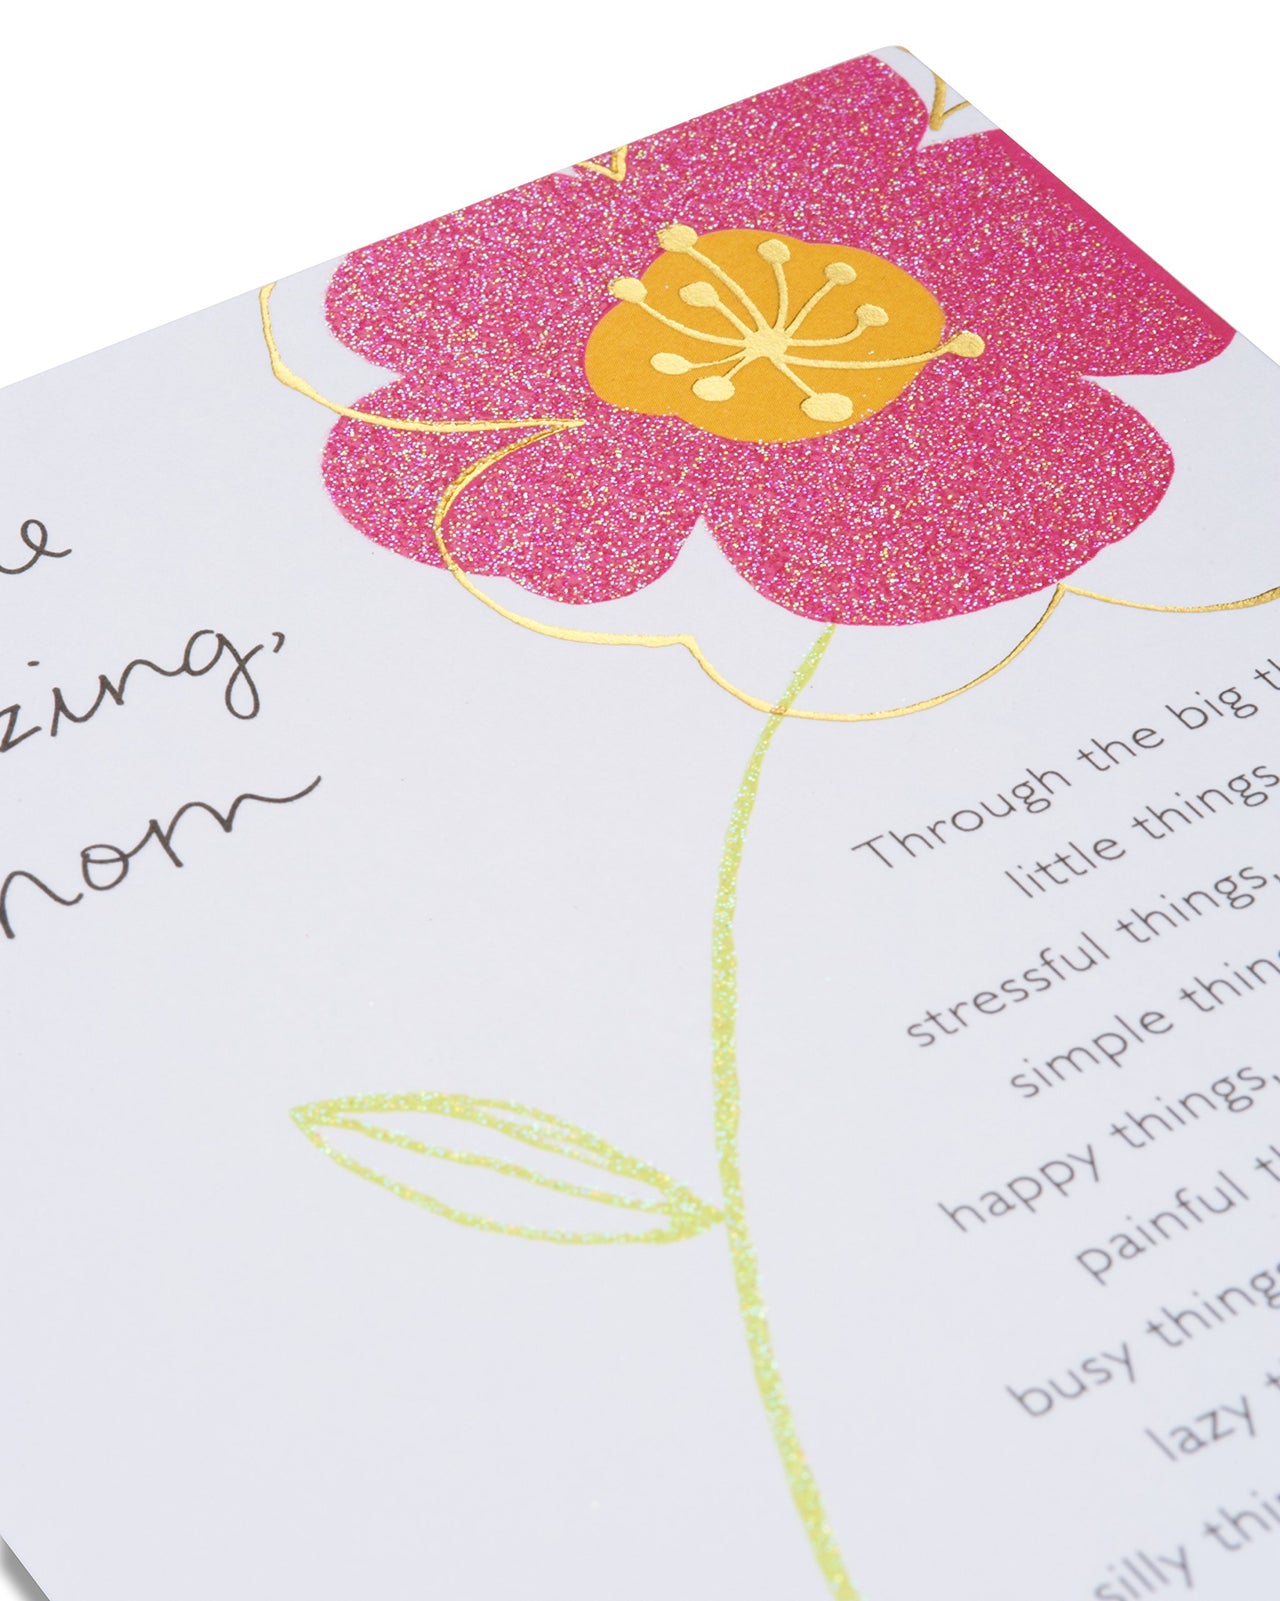 zing,
mom
Through the big
little things
stressful things,
simple
happy things,
painful
busy things
lazy
silly